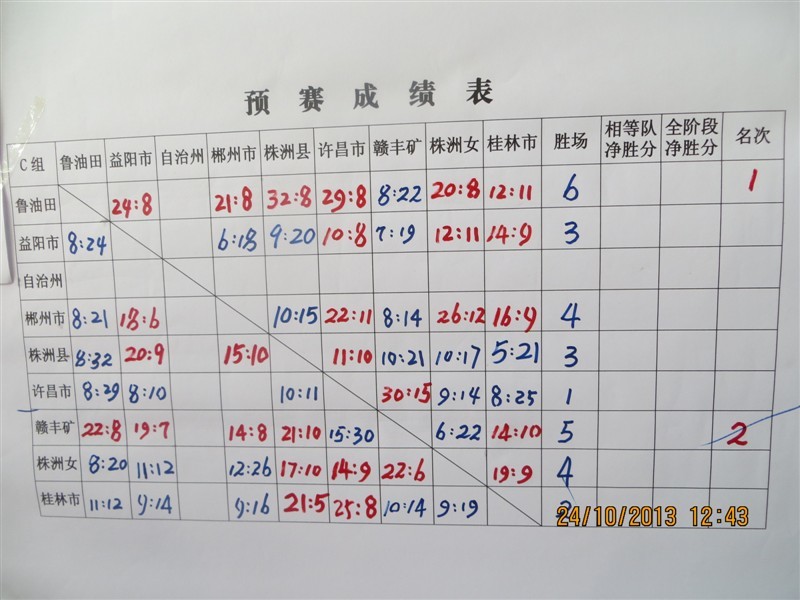 预赛成绩表
C组 鲁油田 益阳市 自治州 郴州市 株洲县 许昌市 赣丰矿 株洲女 桂林市 胜场 相等队净胜分 全阶段净胜分 名次
鲁油田 24:8 21:8 32:8 29:8 8:22 20:8 12:11 6 1
益阳市 8:24 6:18 9:20 10:8 7:19 12:11 14:9 3
自治州
郴州市 8:21 18:6 10:15 22:11 8:14 26:12 16:9 4
株洲县 8:32 20:9 15:10 11:10 10:21 10:17 5:21 3
许昌市 8:29 8:10 10:11 30:15 9:14 8:25 1
赣丰矿 22:8 19:7 14:8 21:10 15:30 6:22 14:10 5 2
株洲女 8:20 11:12 12:26 17:10 14:9 22:6 19:9 4
桂林市 11:12 9:14 9:16 21:5 25:8 10:14 9:19
24/10/2013 12:43